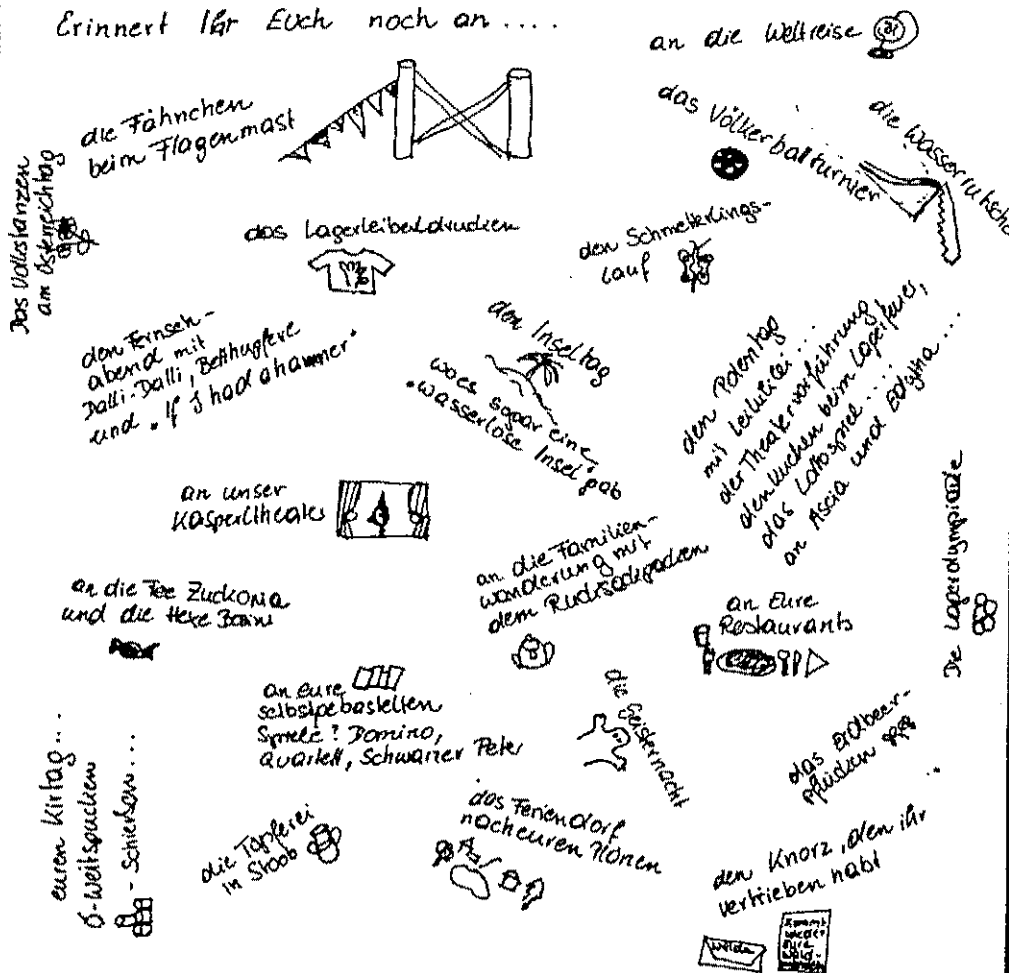 Erinnert Ihr Euch noch an ....
an die Weltreise
die Fähnchen
beim Flagenmast
das Völkerballturnier
die Wasserrutsche
Das Volkstanzen
am Österreichtag
das Lagerleiberldrucken
den Schmetterlings-
lauf
den Fernseh-
abend mit
Dalli-Dalli,
und "If I had a hammer"
den Inseltag
wo es sogar eine
"wasserlose Insel" gab
den Polentag
mit
der Theatervorführung
den Kuchen beim Lagerfeuer,
das Lottospiel .....
an Ascia und Edytha ....
an unser
Kasperltheater
an die Familien-
wanderung mit
dem Rucksackpacken
an die Fee Zuckonia
und die Hexe
an Eure
Restaurants
Die Lagerolympiade
an Eure
selbstgebastelten
Spiele? Domino,
Quartett, Schwarzer Peter
die Geisternacht
das Erdbeer-
pflücken
euren Kirtag...
-Weitspucken
- Schießen...
die Töpferei
in Stoob
das Feriendorf
nach euren Plänen
den Knorz, den ihr
vertrieben habt